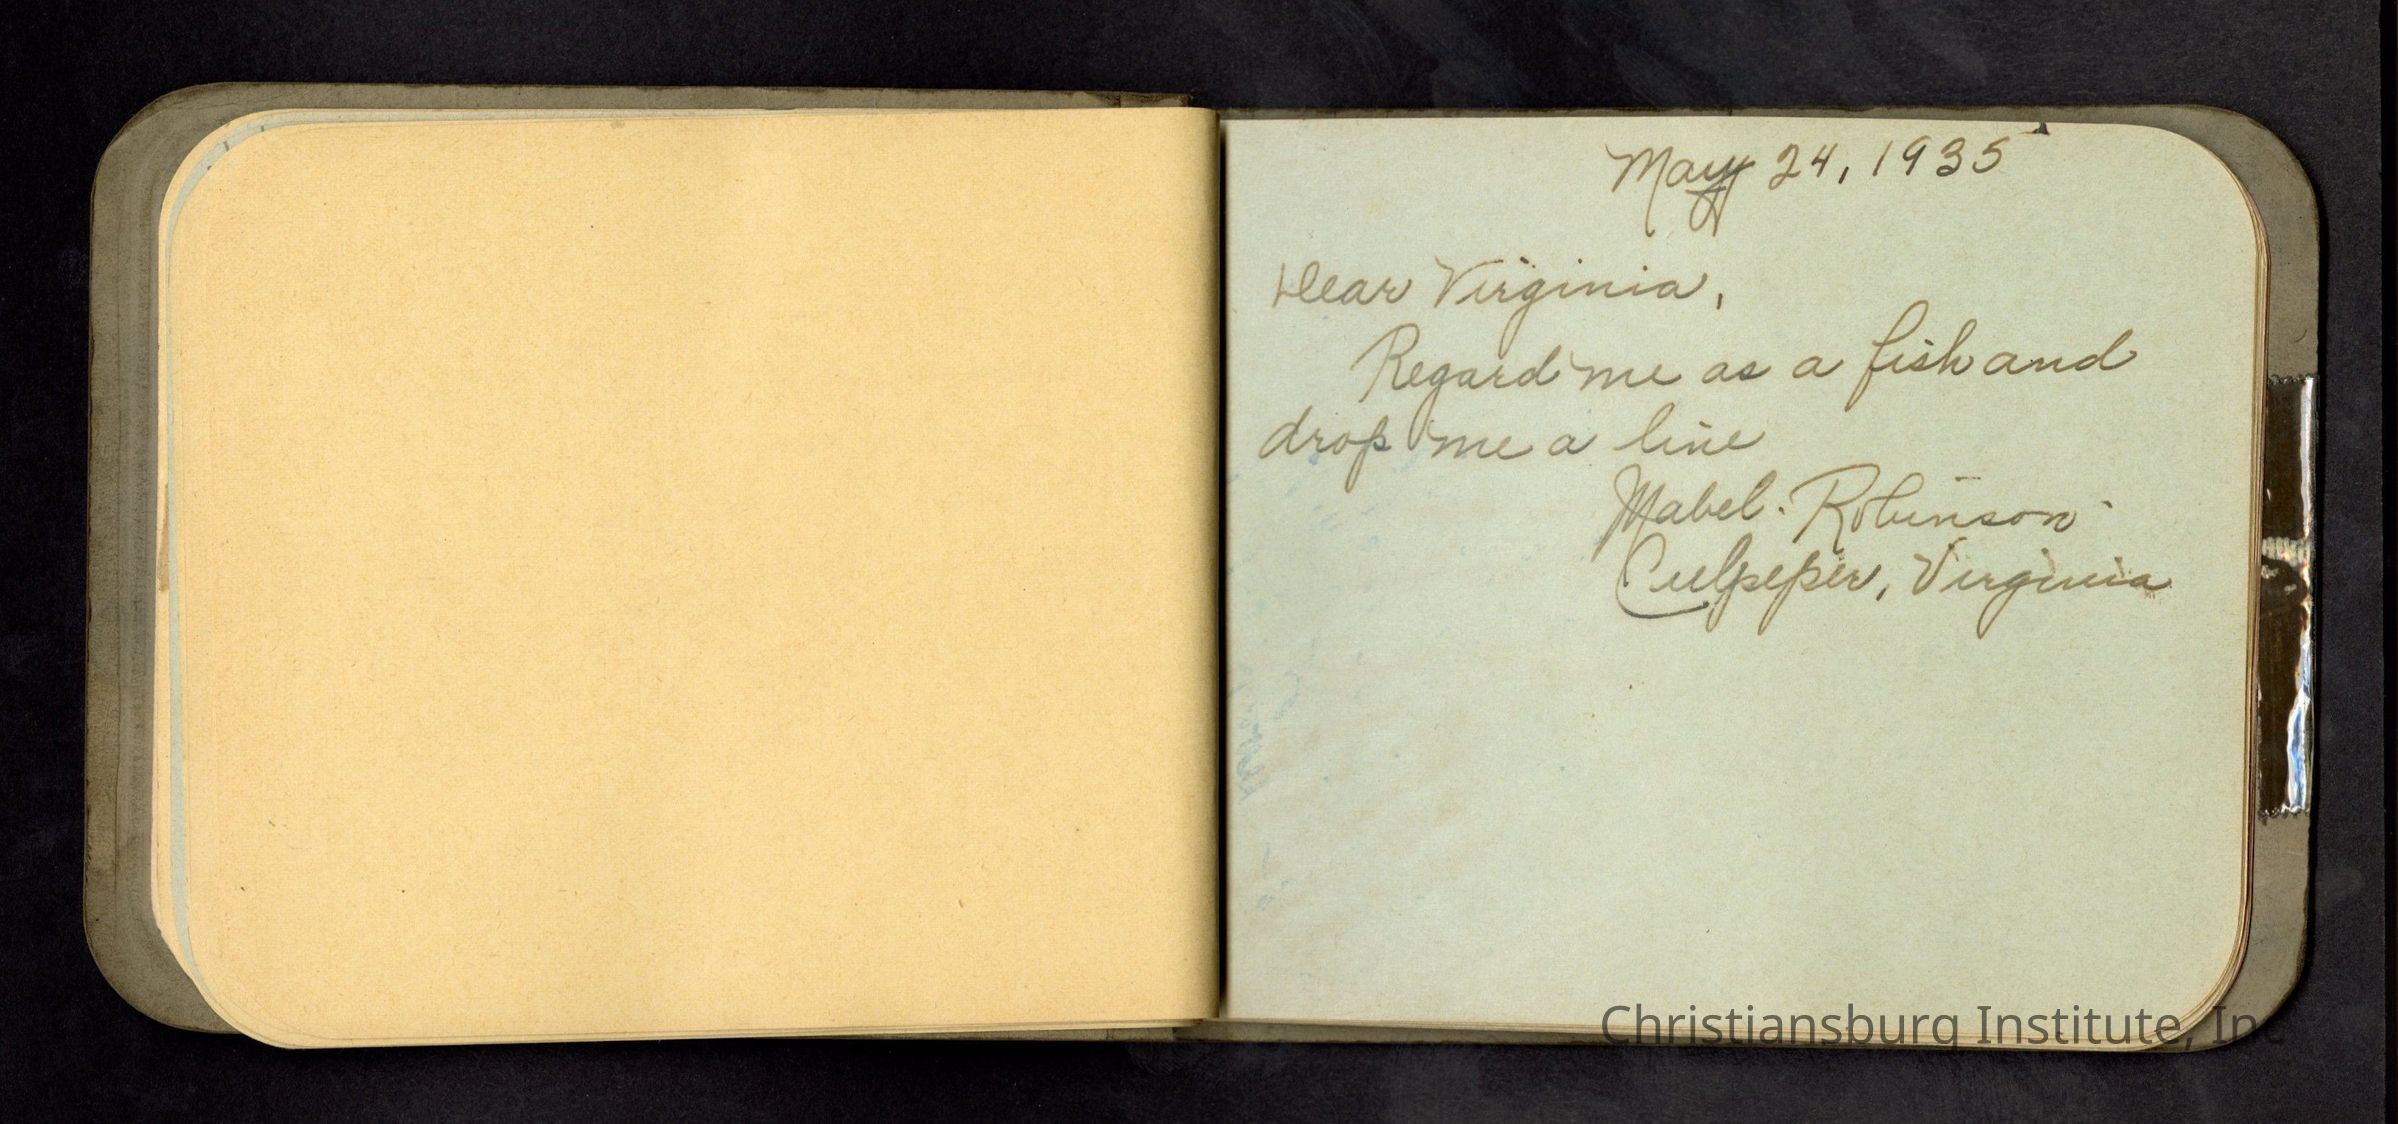 May 24, 1935
Dear Virginia,
Regard me as a fish and
drop me a line
Mabel. Robinson
Culpeper, Virginia
Christiansburg Institute, Inc